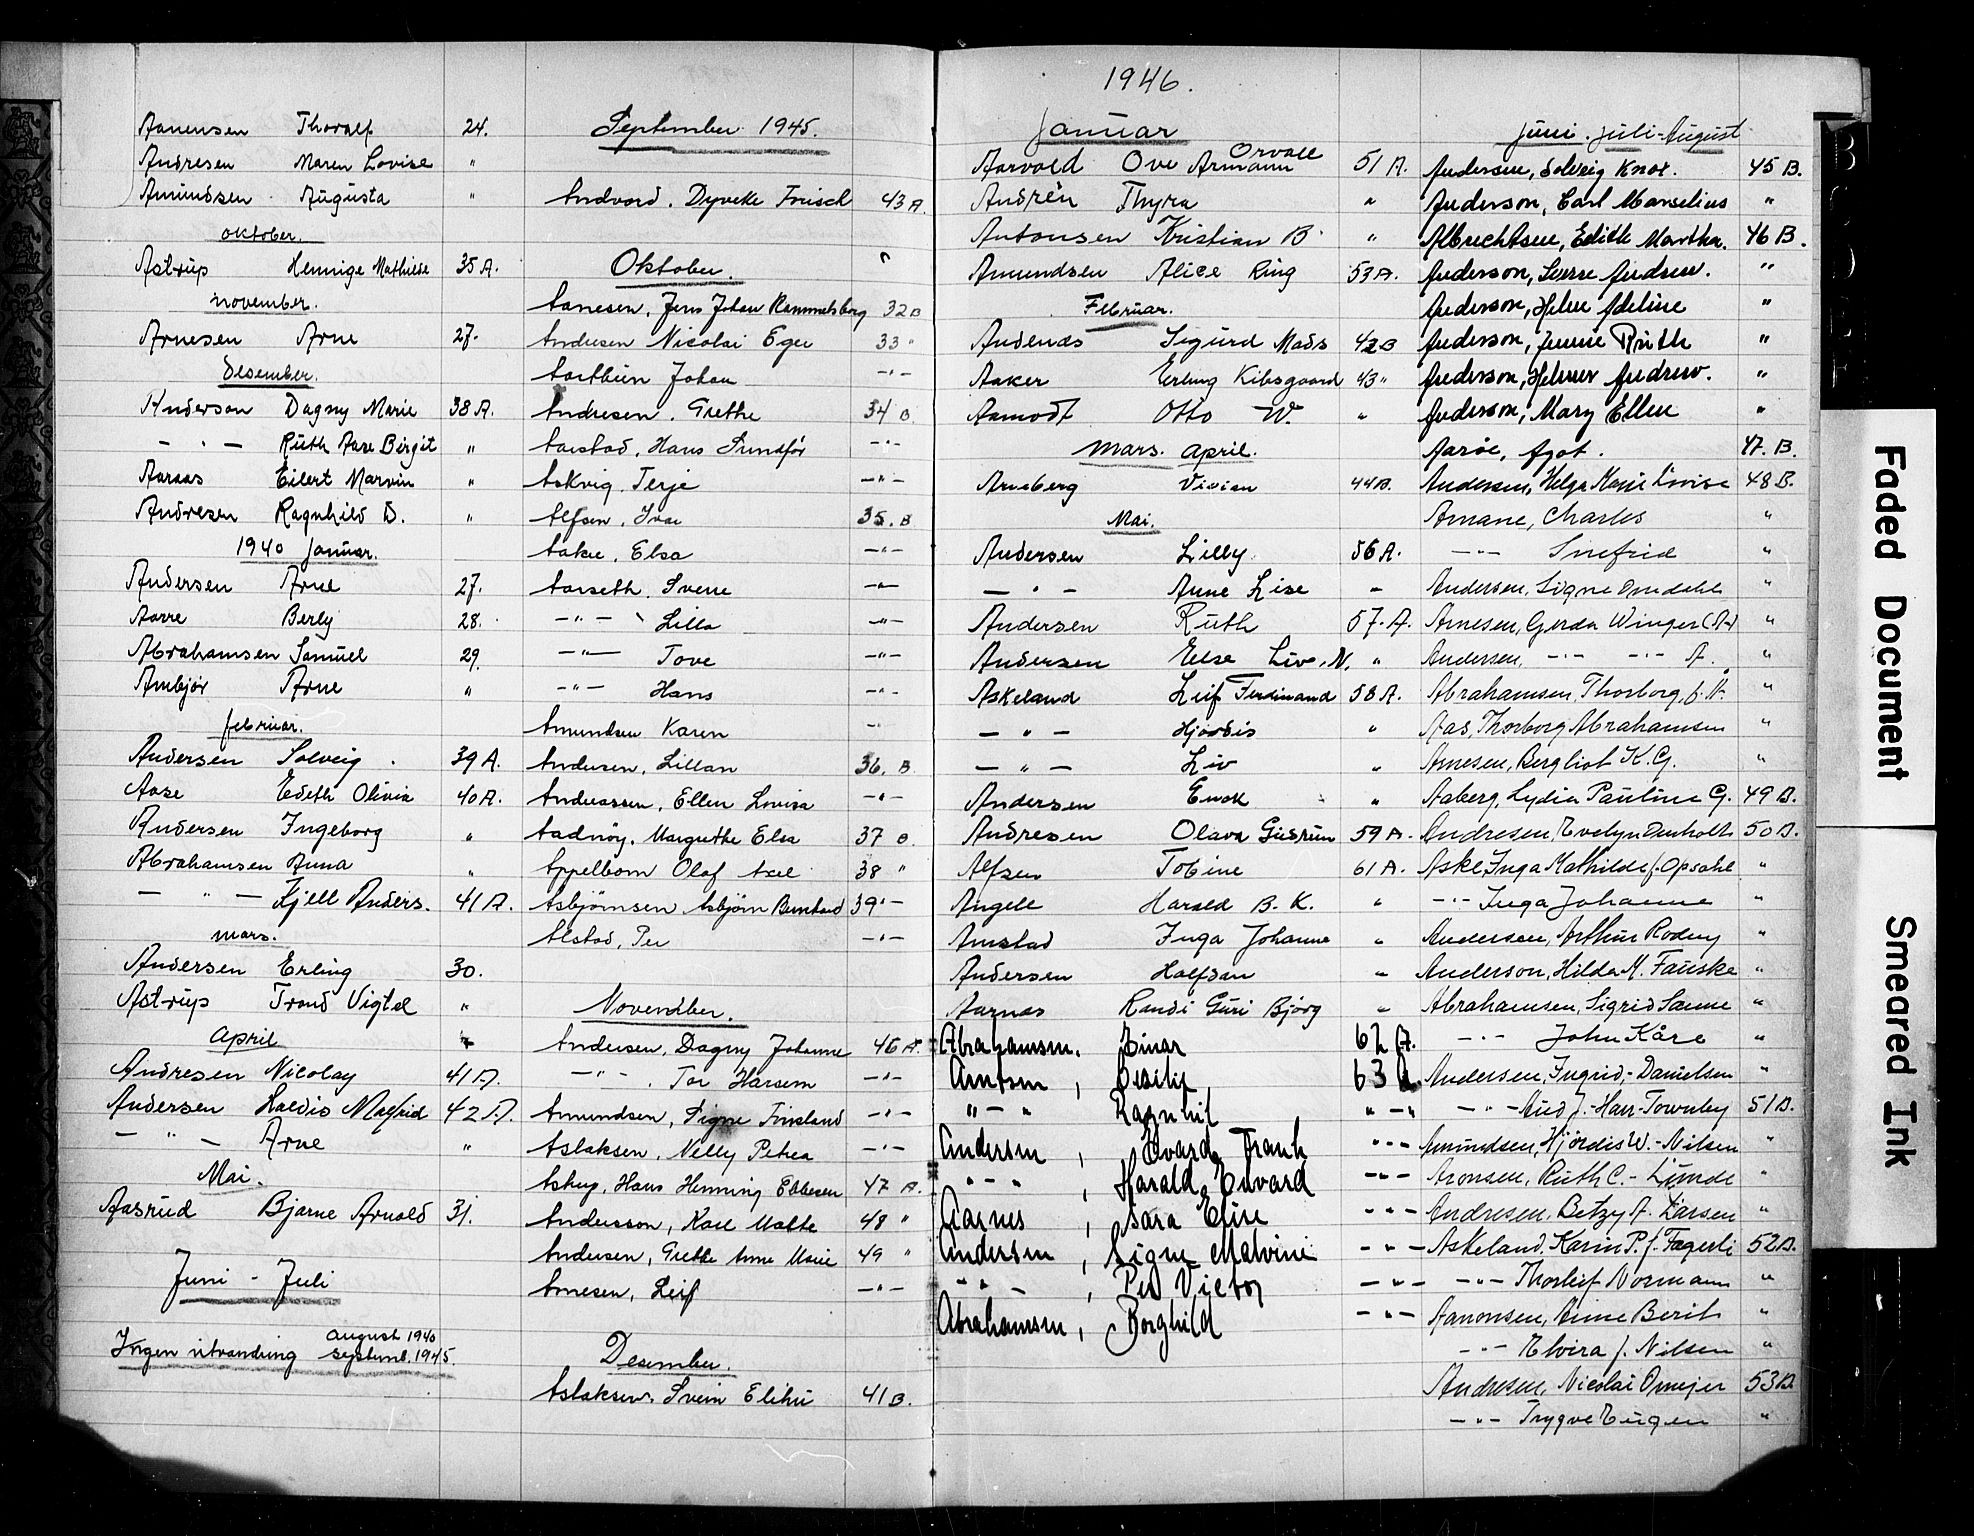 Aanensen Thoralf 24.
Andresen Maren Lovise "
Amundsen Augusta "
oktober.
Astrup Hennige Mathiese 35 A.
november.
Arnesen Arne 27.
Desember.
Anderson Dagny Marie 38 A.
— " — Ruth Aase Birgit "
Aaraas Eilert Marvin "
Andresen Ragnhild D. "
1940 januar.
Andersen Arne 27.
Aarre Berly 28.
Abrahamsen Samuel 29.
Ambjør Arne "
februar.
Andersen Solveig . 39 A.
Aase Edith Olivia 40 A.
Andersen Ingeborg "
Abrahamsen Anna "
— " — Kjell Anders. 41 A.
mars.
Andersen Erling 30.
Astrup Trond Vigtel "
April
Andresen Nicolay 41 A.
Andersen Haldis Malfrid 42 A.
— " — Arne "
Mai.
Aasrud Bjarne Arnold 31.
Juni - Juli
Ingen utvandring august 1940 septemb. 1945.
September 1945.
Andvord, Dyveke Frisch 43 A.
Oktober. "
Aanesen, Jens Johan Rammelsberg 32 B
Andresen Nicolai Eger 33 "
Aarthun Johan — " —
Andresen, Grethe 34 B
Aarstad, Hans Sundfør — " —
Askvig, Terje — " —
Alfsen, Ivar 35. B
Aaker, Elsa — " —
Aarseth, Sverre — " —
— " — Lilla — " —
— " — Tove — " —
— " — Hans — " —
Amundsen Karen — " —
Andersen, Lillan 36. B
Andreassen, Ellen Lovisa — " —
Aadnøy, Margrethe Elsa 37 B
Appelbom Olaf Axel 38 "
Asbjørnsen Asbjørn Bernhard 39 " —
Alstad, Per — " —
November.
Andersen, Dagny Johanne 46 A.
— " — , Tor Harsem — " —
Amundsen, Signe Finsland — " —
Aslaksen, Nelly Petrea — " —
Astrup, Hans Henning Ebbesen 47 A.
Andersson, Karl Malte 48 "
Andersen, Grethe Anne Marie 49 "
Arnesen, Leif — " —
Desember.
Aslaksen, Svein Elihu 41 B.
1946.
Januar
Aarvold Ove Armann Orvall 51 A.
Andrén Thyra "
Antonsen Kristian B "
Amundsen Alice Ring 53 A.
Februar.
Andenæs Sigurd Mads 42 B
Aaker Erling Kibsgaard 43 "
Aamodt Otto W. "
Mars. April.
Arneberg Vivian 44 B.
Mai.
Andersen Lilly 56 A.
— " — Anne Lise "
Andersen Ruth 57. A.
Andersen Else Liv. N. "
Askeland Leif Ferdinand 58 A.
— " — Hjørdis "
— " — Liv "
Andersen "
Andresen Olava Gudrun 59 A.
Alfsen Tobine 61 A.
Angell Harald B. K. "
Amstad Inga Johanne "
Andersen Halfdan "
Aarnes Randi Guri Bjørg "
Abrahamsen, Einar 62 A.
Arntsen, 63 A
" — " Ragnhil " — "
Andersen, Edvard Frank " — "
" — ", Harald Edvard " — "
Aarnes, Sara Eline " — "
Andersen, Signe Malvine — " —
— " —, Per Victor — " —
Abrahamsen, Borghild — " —
juni. juli - August
Andersen, Solveig Knox. 45 B.
Anderson, Carl Marselius "
Albrechtsen, Edith Martha. 46 B.
Anderson, Sverre Andrew. "
Anderson, Helen Adeline "
Anderson, Jennie Ruth "
Anderson, Helmer Andrew. "
Anderson, Mary Ellen "
Aarøe, Agot. 47. B.
Andersen, Helga Marie Lovise 48 B.
Amane, Charles "
— " — Snefrid "
Andersen, Signe Omdahl "
Arnesen, Gerda Winger (A.) "
Andersen, — " — — " — A. "
Abrahamsen, Thorborg, f. A. "
Aas, Thorborg Abrahamsen "
Arnesen, Bergliot K. G. "
Aaberg, Lydia Pauline G. 49 B.
Andresen, Evelyn Denholt 50 B.
Aske, Inga Mathilde f. Opsahl "
— " — Inga Johanne "
Andersen, Arthur Rodny "
Anderson, Hilda M. Fauske "
Abrahamsen, Sigrid Sanne "
— " — John Kåre "
Andersen, Ingrid, - Danielsen "
— " — Aud J. - Harr-Townley 51 B.
Amundsen, Hjördis W. - Nilsen "
Aronsen, Ruth C. - Lunde "
Andresen, Betzy A. Larsen "
Askeland, Karin P. f. Fagerli 52 B.
— " — Thorleif Normann "
Aanonsen, Anne Berit "
— " — Elvira f. Nilsen "
Andresen, Nicolai Omejer 53 B.
— " — Trygve Eugen "
B
C
D
E
F
Faded Document
Smeared Ink